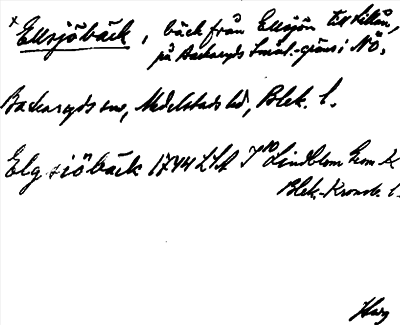 x Ellsjöbäck, bäck från Ellsjön till
på Backaryds smål.-gräns i NÖ.
Backaryds sn, Medelstads hd, Blek. l.
Elgsiöbäck 1744 LSA Lindblom Geom K
Blek.-Kronob. l.